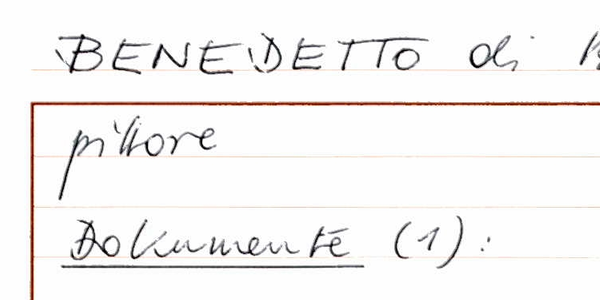 BENEDETTO di
pittore
Dokumente (1):